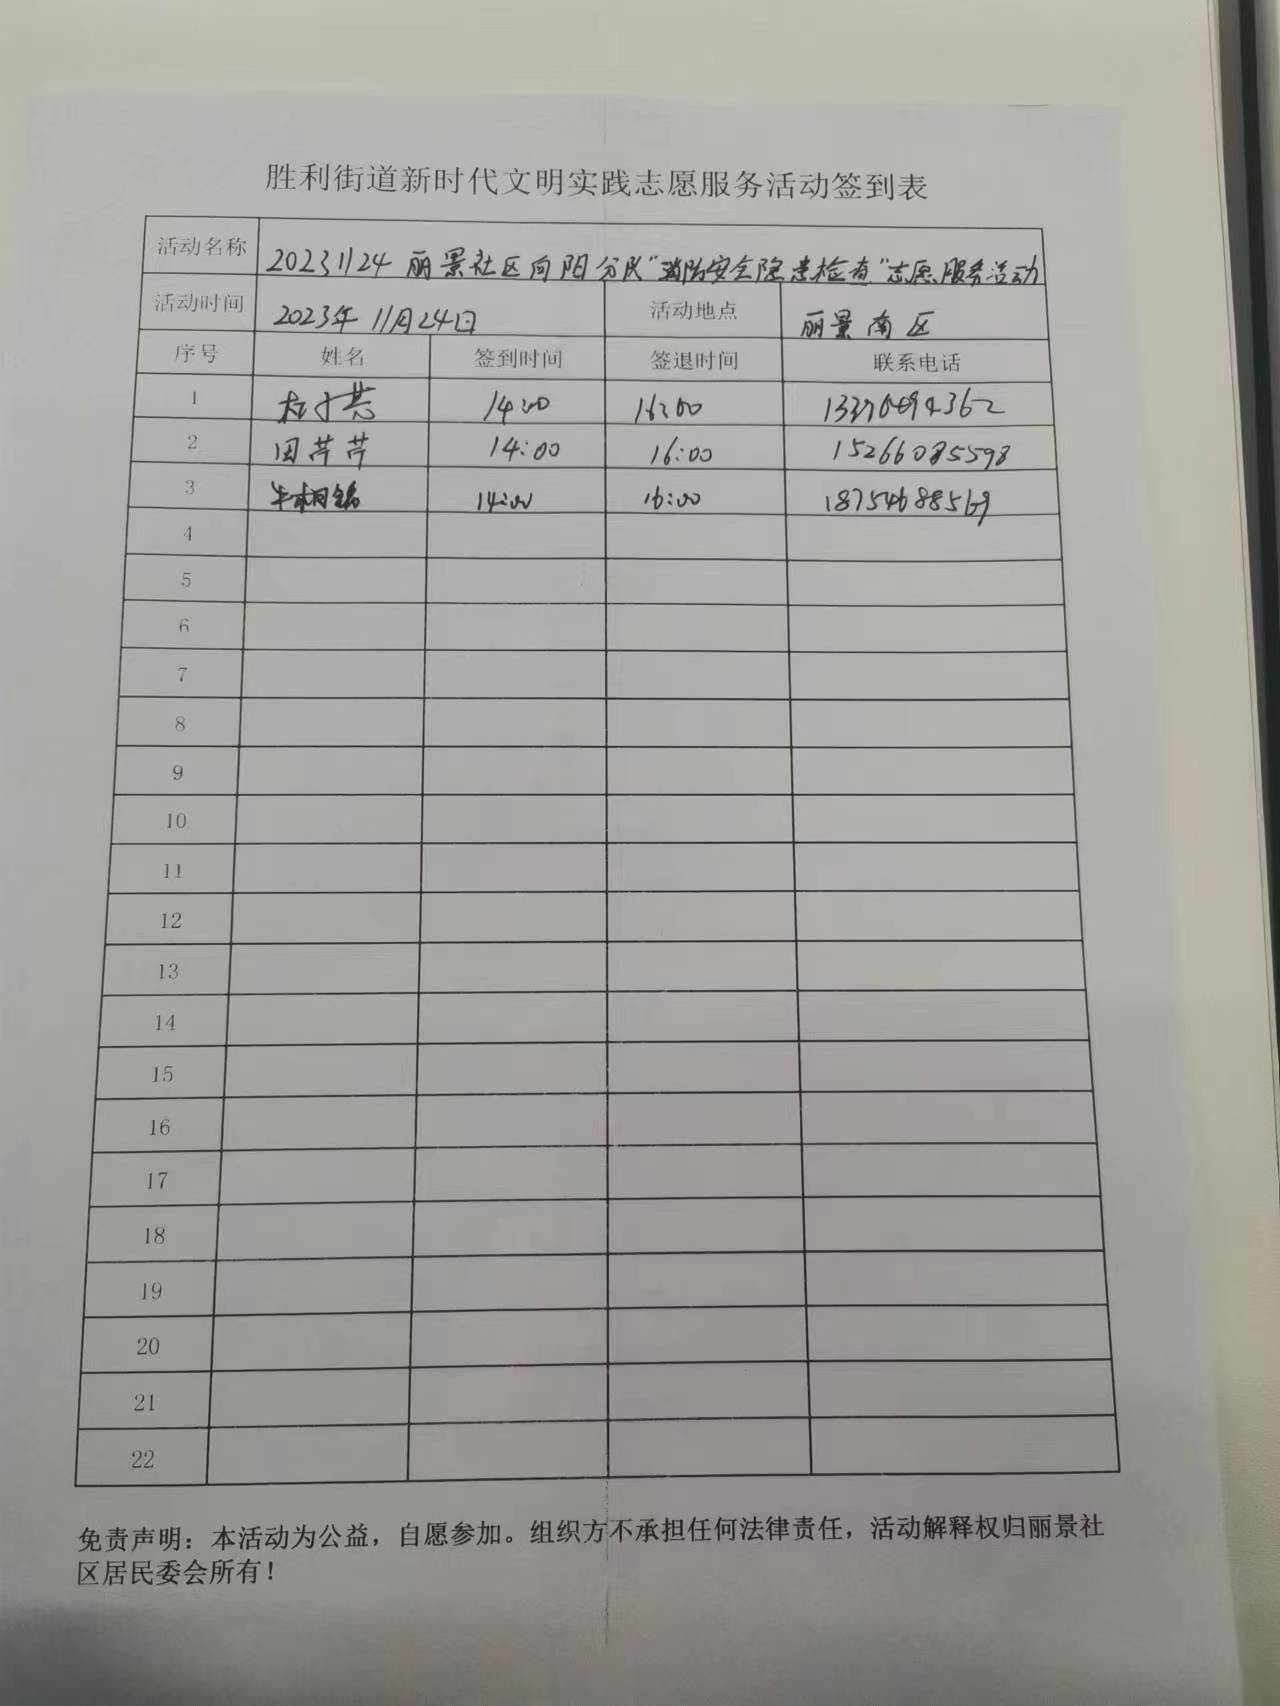 胜利街道新时代文明实践志愿服务活动签到表
活动名称 20231124 丽景社区向阳分队“消防安全隐患检查”志愿服务活动
活动时间 2023年11月24日 活动地点 丽景南区
序号 姓名 签到时间 签退时间 联系电话
1 14:00 16:00
2 田芹芹 14:00 16:00 15266085598
3 14:00 16:00 18754688569
4
5
6
7
8
9
10
11
12
13
14
15
16
17
18
19
20
21
22
免责声明：本活动为公益，自愿参加。组织方不承担任何法律责任，活动解释权归丽景社
区居民委会所有！